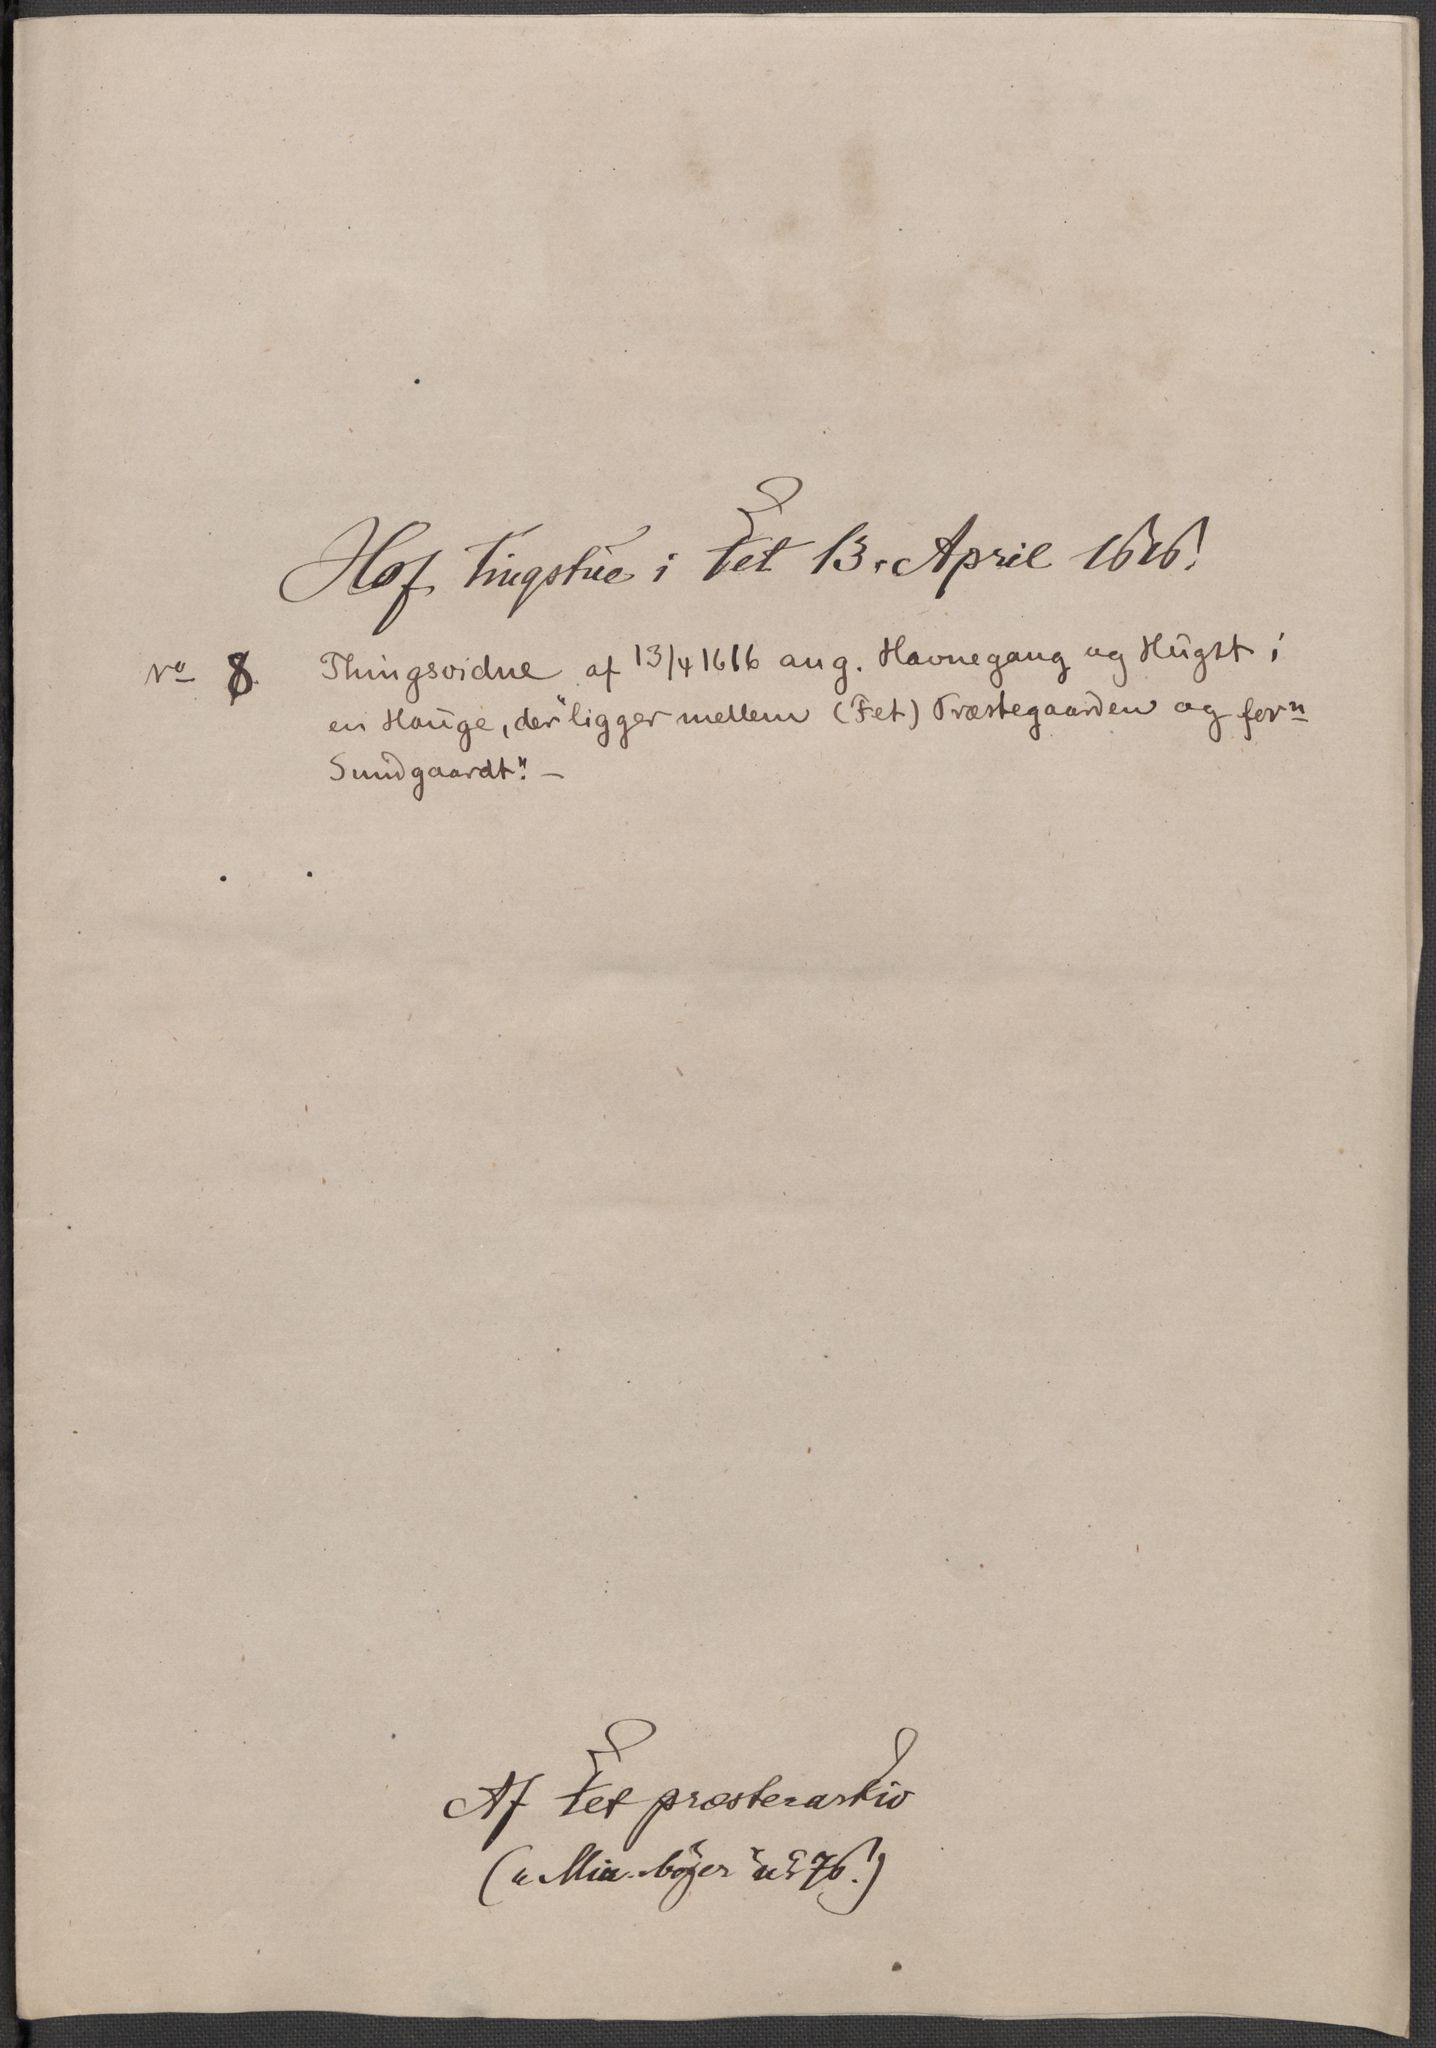 Hof tingstue i Fet 13. April 1616.
No 8. Thingsvidne af 13/4 1616 ang. Havnegang og Hugst i
en Hauge, der "ligger mellem (Fet) Præstegaarden og forn
Sundgaardt". —
Af Fet præstearkiv
("Min. bøger" nr 76.)